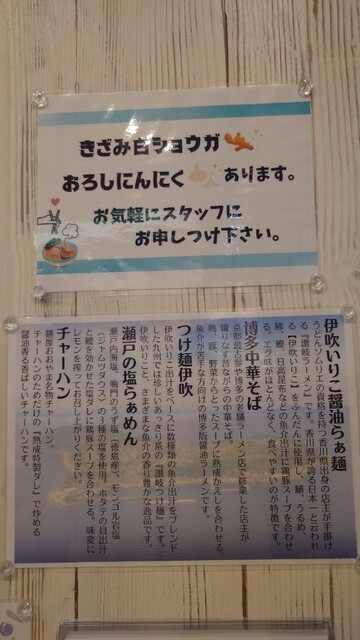 きざみ白ショウガ
おろしにんにく あります。
お気軽にスタッフに
お申しつけ下さい。
伊吹いりこ醤油らぁ麺
うどんソムリエの資格を持つ香川県出身の店主が手掛け
る「讃岐ラーメン」です。香川県が誇る日本一と云われ
る『伊吹いりこ』をふんだんに使用し、鯖、うるめ、
鯵、鰹、日高昆布などの魚介出汁に鶏豚スープを合わせ
る。エグ味がほとんどなく、食べやすいのが特徴です。
博多中華そば
京都最古館や博多の老麺ラーメン店で修業した店主が
織りなす昔ながらの中華そば。
鶏、豚、野菜からとったスープに熟成かえしを合わせる、
魚介が苦手な方向けの博多版醤油ラーメンです。
つけ麺伊吹
伊吹いりこ出汁をベースに数種類の魚介出汁をブレンド
した九州では珍しいあっさり系の「讃岐つけ麺」です。
伊吹いりこと、さまざまな魚介の香り豊かな逸品です。
瀬戸の塩らぁめん
瀬戸内海塩、鳴門のうず塩（徳島産）、モンゴル岩塩
（ジャムツダウス）の3種の塩を使用。ホタテの貝出汁
と鰹を効かせた塩ダレに鶏豚スープを合わせる。味変に
レモンを搾ってお召し上がりください。
チャーハン
麺屋おおやま名物チャーハン。
チャーハンのためだけの『熟成特製ダレ』で炒める
醤油香る香ばしいチャーハンです。